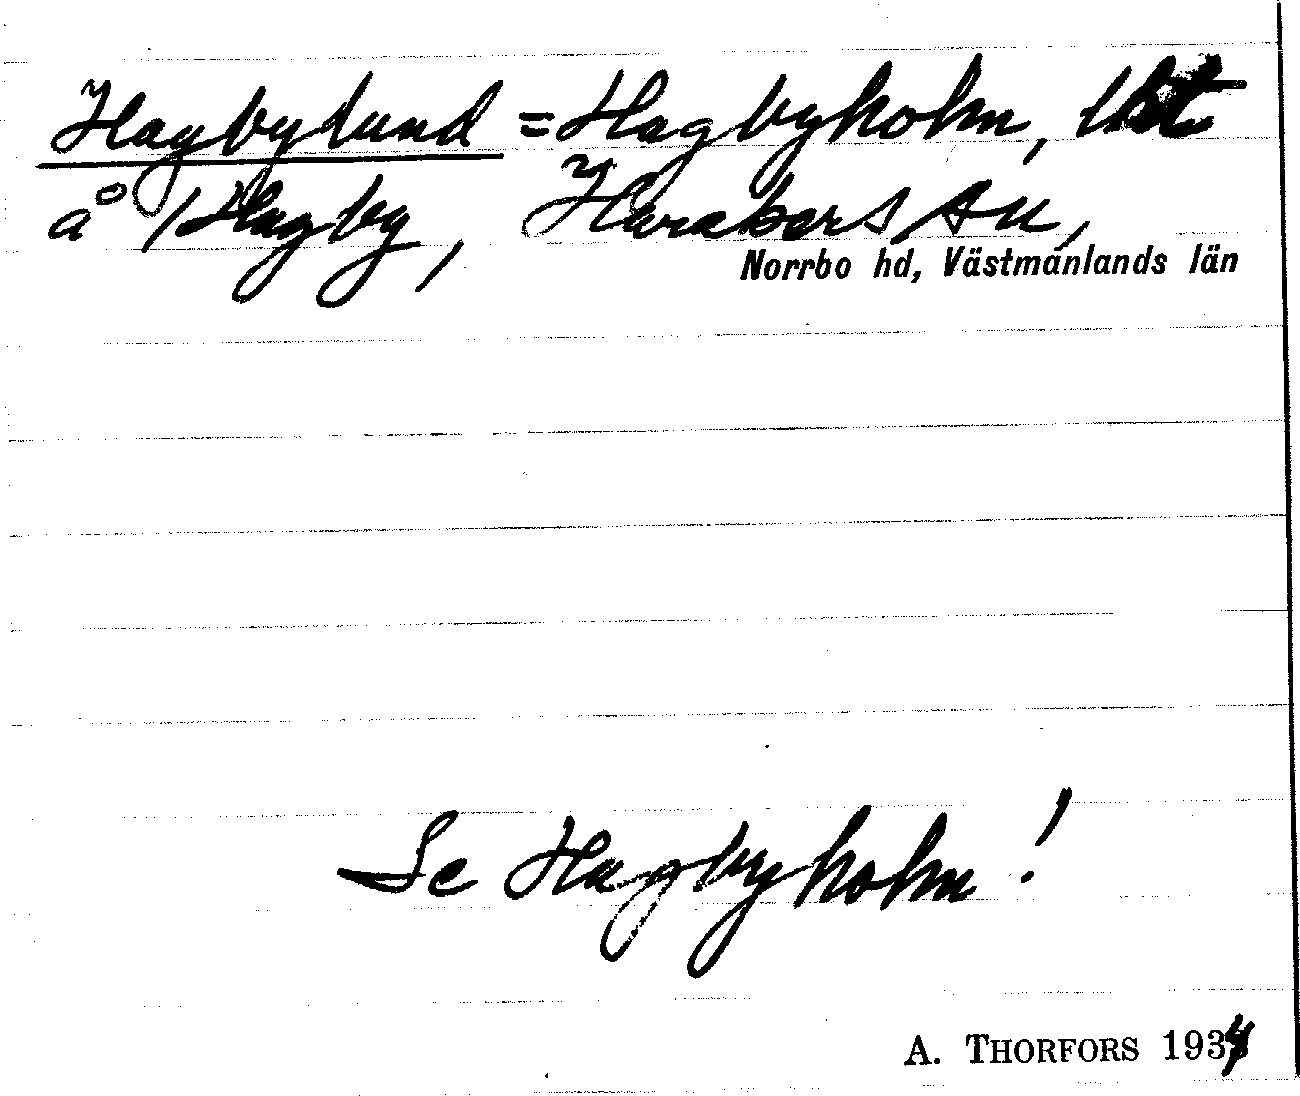 Hagbylund = Hagbyholm, lht
å 1 Hagby, Harakers sn,
Norrbo hd, Västmanlands län
Se Hagbyholm!
A. THORFORS 1934